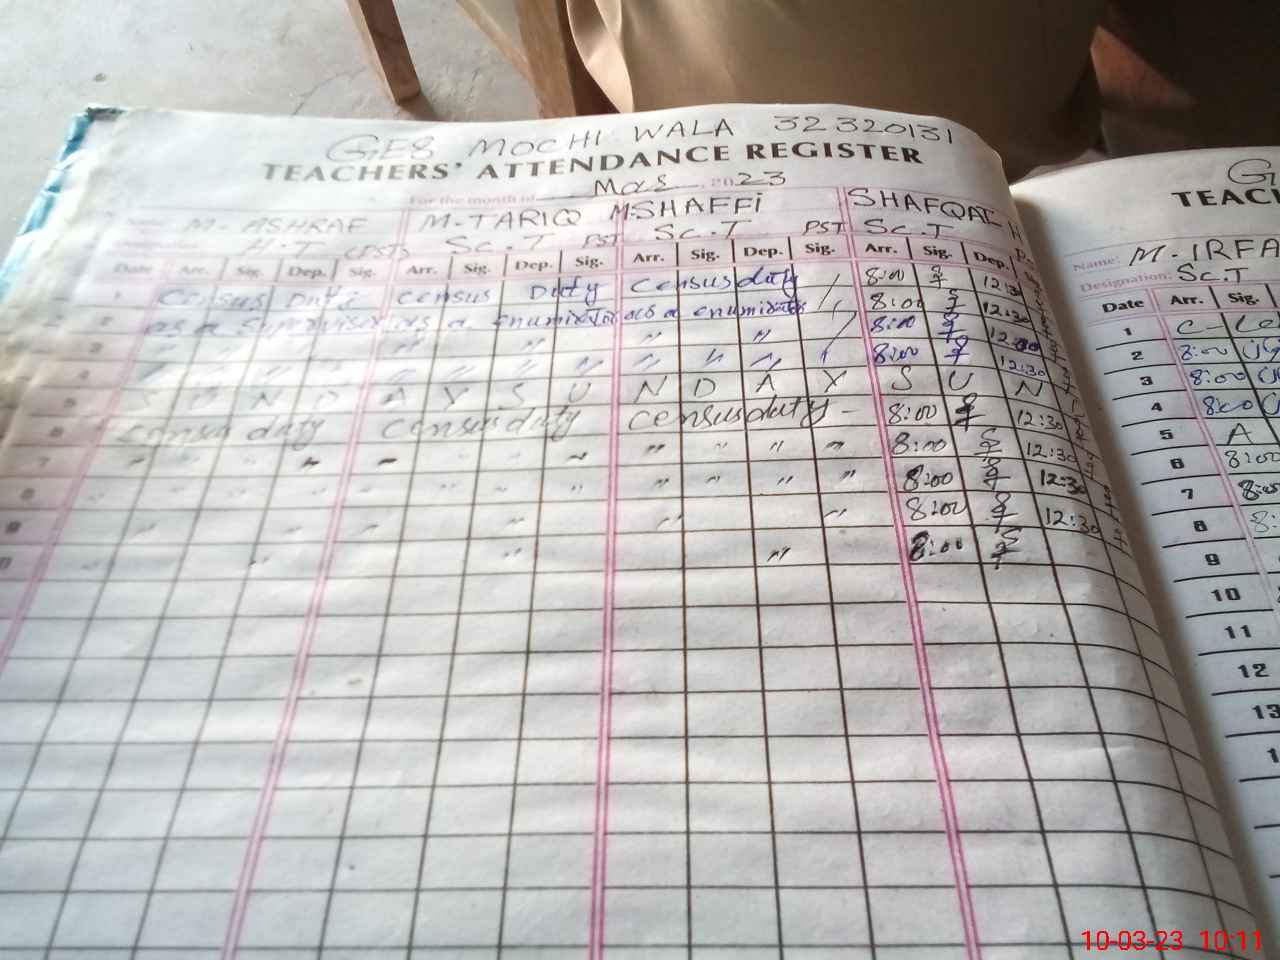 GES MOCHI WALA 32320131
TEACHERS' ATTENDANCE REGISTER
For the month of Mar 2023
M. ASHRAF M-TARIQ M.SHAFFi SHAFQAT H
H.T (PST) Sc.T PST Sc.T PST Sc.T
Date Arr. Sig. Dep. Sig. Arr. Sig. Dep. Sig. Arr. Sig. Dep. Sig. Arr. Sig. Dep.
1 Census Duti Census Duty Census duty 8:00 12:30
2 as a Supervisor as a enumirator as a enumirator 8:00 12:30
3 " " " 8:00 12:30
4 " " " " " " " 8:00 12:30
5 S U N D A Y S U N D A Y S U N
6 Census duty Census duty Census duty - 8:00 12:30
7 " " " " " " " " " " " " 8:00 12:30
8 " " " " " " " " " " " " 8:00 12:30
9 " " " " " " 8:00 12:30
10 " " " 8:00
G
TEAC
Name: M. IRFA
Designation: Sc.T
Date Arr. Sig.
1 C-Le
2 8:00
3 8:00
4 8:00
5 A
6 8:00
7 8:00
8 8:
9
10
11
12
13
1
10-03-23 10:11